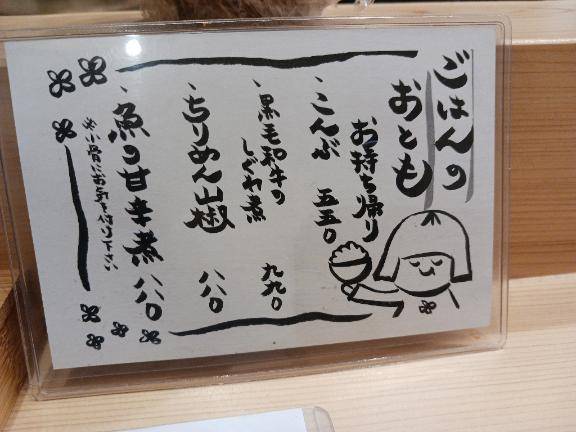 ごはんの
おとも
お持ち帰り
、こんぶ 五五〇
、黒毛和牛の
しぐれ煮 九九〇
、ちりめん山椒 八八〇
、魚の甘辛煮 八八〇
※小骨にお気を付け下さい